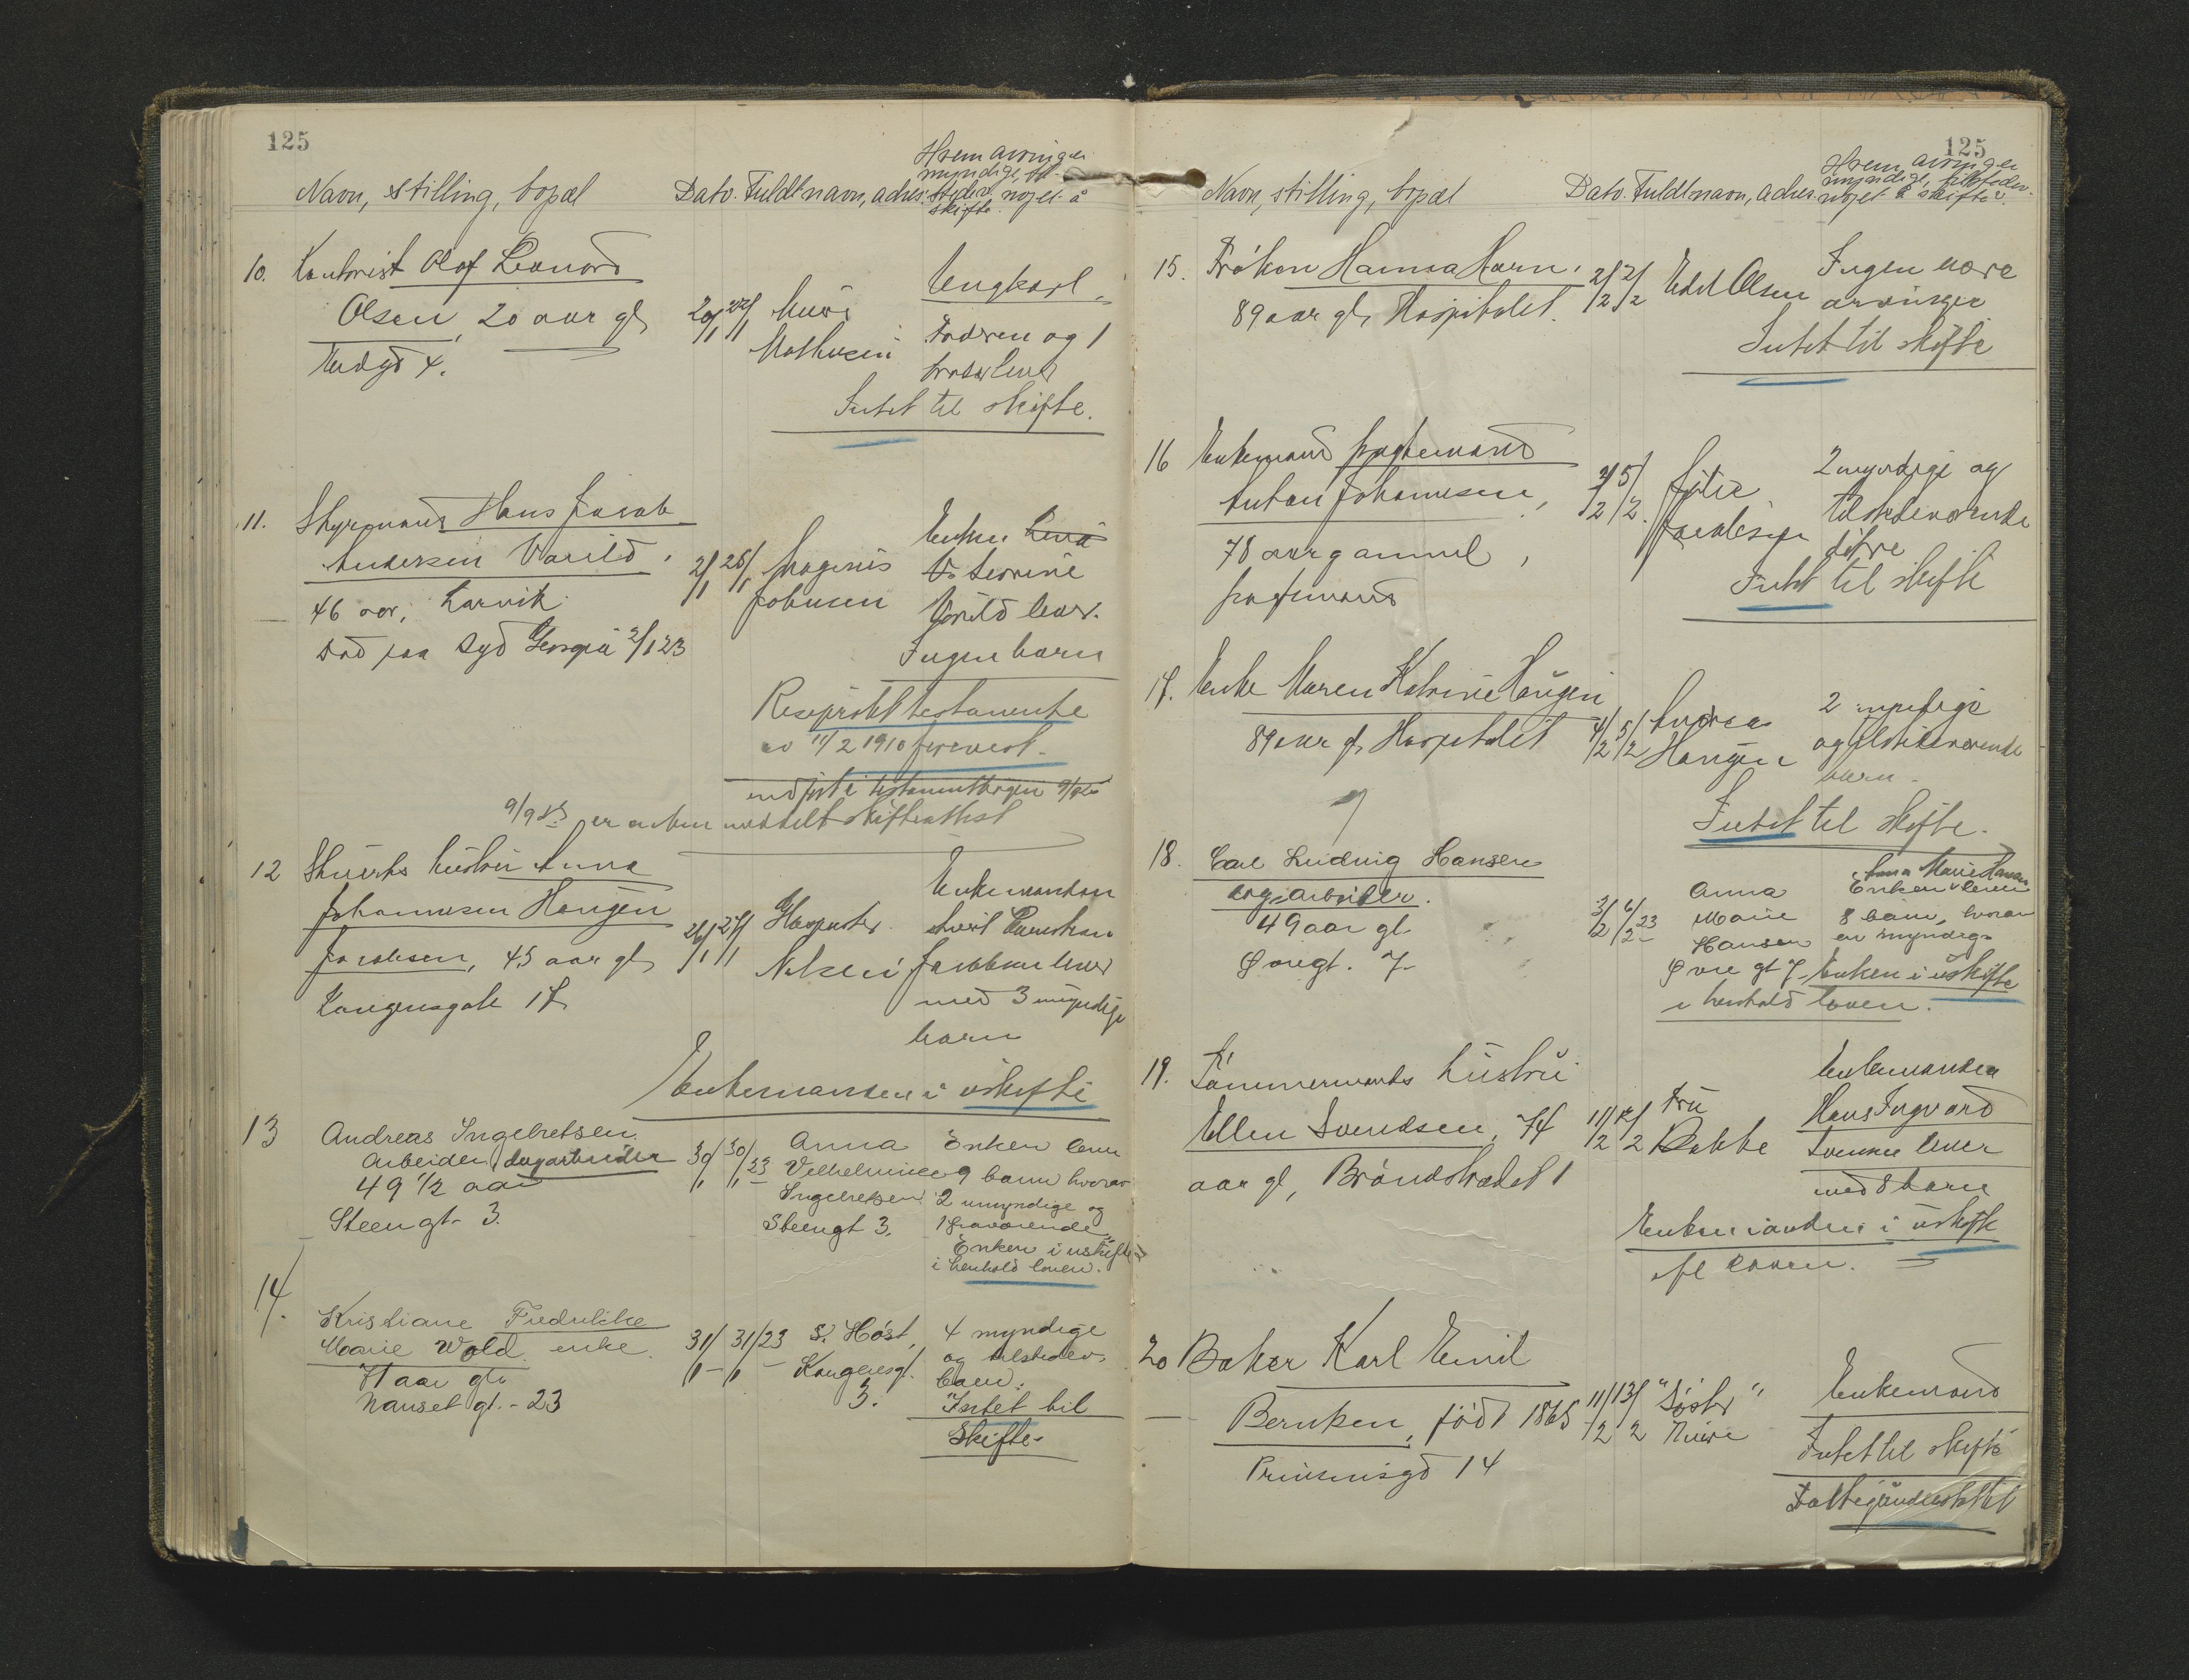 125
Navn, stilling, bopæl
Dato. Fuldt navn, adres.
Hvem arvinger
myndige, til-
stedev. noget å
skifte.
10. Kontorist Olaf Leonard
Olsen, 20 aar gl,
4.
20/1 22/1
Mathisen
Ungkarl.
Faderen og 1
broder lever
Intet til skifte.
11. Styrmand Hans Jacob
Andersen Varild
46 aar, Larvik
død paa Syd Georgia 2/1 23
2/1 26/1 Magnus
Johnsen
Enken
Severine
Varild lever.
Ingen barn
Resiprokt testamente
av 11/2 1910 forevist.
indført i testamentbogen
9/9 23 er enken meddelt skifteattest
12 Skuerts hustru Anna
Johannesen Haugen
Jacobsen, 45 aar gl,
Kongensgate 17
26/1 27/1
Nilsen
Enkemanden
Jacobsen lever
med 3 myndige
barn
Enkemanden i uskifte
13 Andreas Ingebretsen
Arbeider, dagarbeider
49 1/2 aar
Steengt. 3.
30/1 30/1 23
Anna
Vilhelmine
Ingebretsen
Steengt 3.
Enken lever
9 barn hvorav
2 umyndige og
1 fraværende
Enken i uskifte
i henhold loven.
14.
Kristiane Fredrikke
Marie Wold enke.
71 aar gl.
Nanset gt. - 23
31/1 - 31/1 23
S. Høst,
Kongensgt.
3.
4 myndige
og tilstedev.
barn.
Intet til
Skifte
125
Navn, stilling, bopæl
Dato. Fuldt navn, adres.
Hvem arvinger
myndige, tilstedev.
noget å skifte.
15. Frøken Hanna Horn.
89 aar gl, Hospitalet.
2/2 2/2 Edel Olsen
Ingen nære
arvinger
Intet til skifte
16 Enkemand fragtemand
Anton Johannesen,
78 aar gammel,
fragtmand
2/2 5/2
Jacobsen
2 myndige og
tilstedeværende
døtre
Intet til skifte
17. Enke Maren Katrine Haugen
89 aar gl, Hospitalet
4/2 5/2 Andreas
Haugen
2 myndige
og tilstedeværende
barn.
Intet til skifte.
18. Carl Ludvig Hansen
dag-arbeider.
49 aar gl.
Øvregt. 7.
3/2 6/2 23
Anna
Marie
Hansen
Øvre gt 7.
Anna Marie Hansen
Enken lever
8 barn, hvorav
en myndig.
Enken i uskifte
i henhold loven.
19. Tømmermands hustru
Ellen Svendsen, 74
aar gl, Brøndstrædet 1
11/2 12/2 Fru
Bakke
Enkemanden
Hans Ingvard
Svensen lever
med 8 barn
Enkemanden i uskifte
efl loven.
20 Baker Karl Emil
Bernken, født 1865
Prinsensgd 14
11/2 13/2 "Søster"
Enkemand
Intet til skifte
Fattigunderstøttet